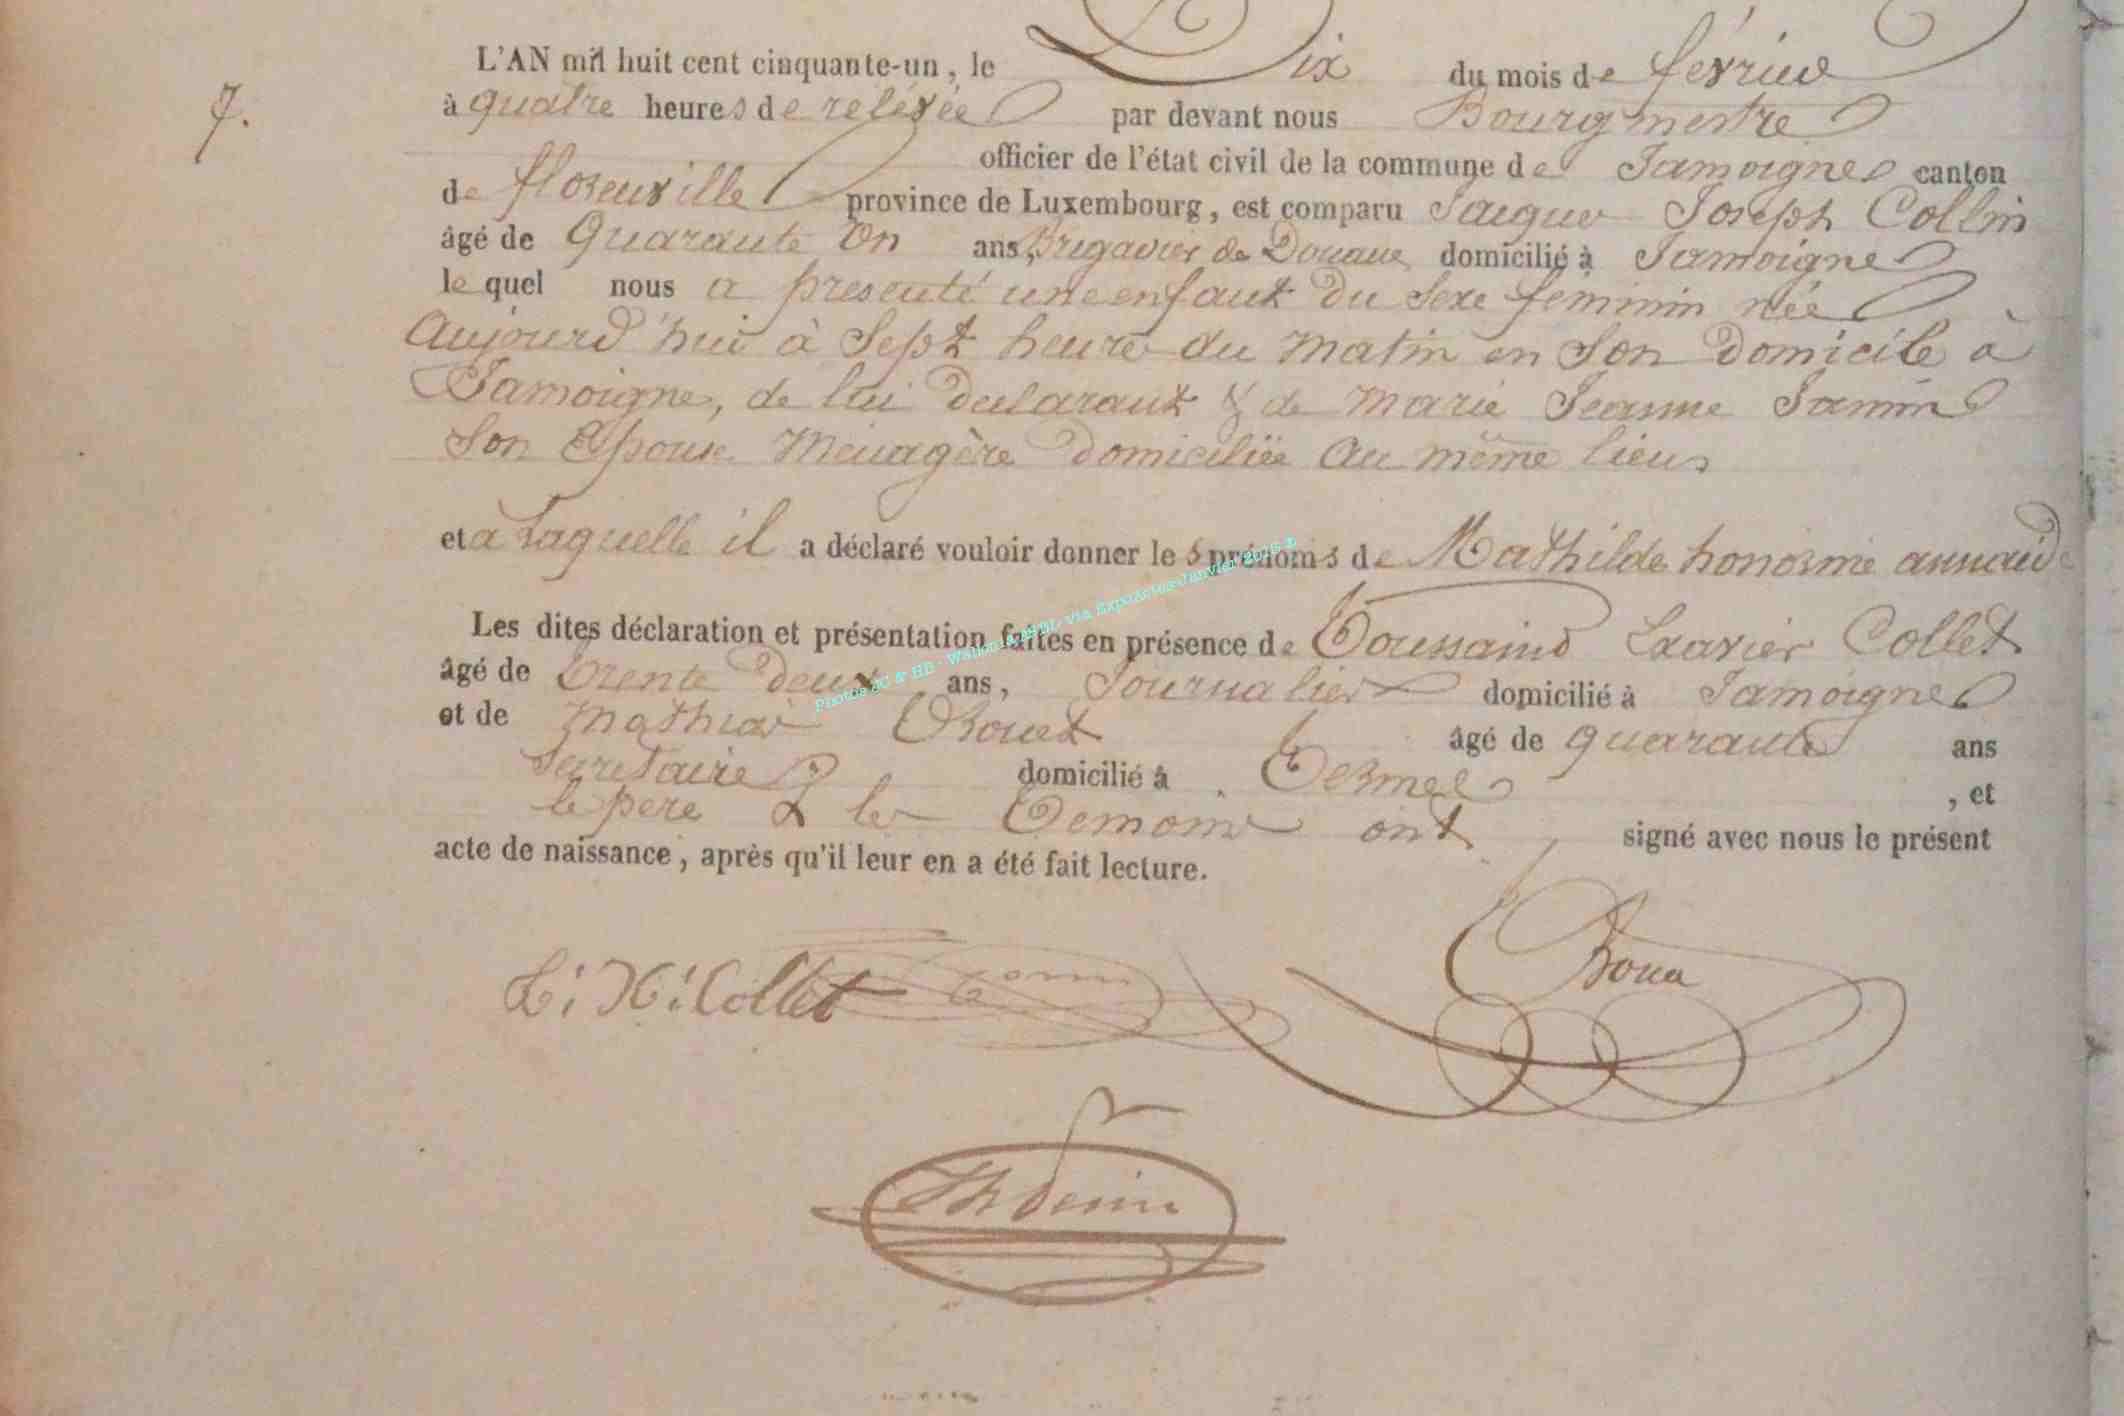 L'AN mil huit cent cinquante-un, le Dix du mois de février
7.
à quatre heures de relévée par devant nous Bourgmestre
officier de l'état civil de la commune de Jamoigne canton
de florenville province de Luxembourg, est comparu Jacques Joseph Collin
âgé de Quarante un ans, Brigadier de Douane domicilié à Jamoigne
le quel nous a presenté une enfant du Sexe feminin née
Aujourd'hui à Sept heure du Matin en Son Domicile à
Jamoigne, de lui declarant & de Marie Jeanne
Son Epouse Menagère Domiciliée au même lieu
et a Laquelle il a déclaré vouloir donner les prénoms de Mathilde honorine
Les dites déclaration et présentation faites en présence de Toussaind Xavier Collet
âgé de trente deux ans, Journalier domicilié à Jamoigne
et de Mathias âgé de quarante ans
Secretaire domicilié à Termes
, et
le pere & les Temoins ont signé avec nous le présent
acte de naissance, après qu'il leur en a été fait lecture.
Collet
Photos JC & HB - via ExpoActes Janvier 2016 ®